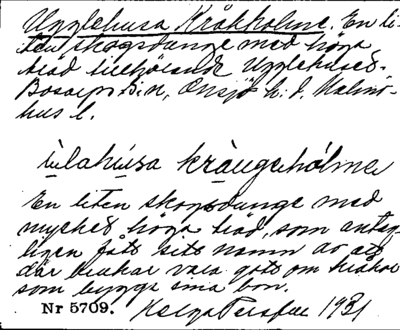 Ugglehusa Kråkholme. En li-
ten skogsdunge med höga
träd tillhörande Ugglehuset.
Bosarps sn, Onsjö h. i Malmö-
hus l.
ùlahúsa kràngehólme
En liten skogsdunge med
mycket höga träd, som antag-
ligen fått sitt namn av att
där brukar vara gott om kråkor
som bygga sina bon.
Nr 5709. Helga Persson 1931